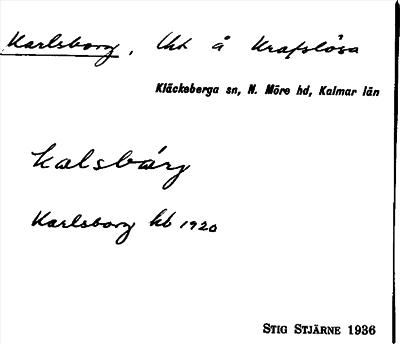 Karlsborg, lht å Krafslösa
Kläckeberga sn, N. Möre hd, Kalmar län
kalsbárg
Karlsborg kb 1920
STIG STJÄRNE 1936